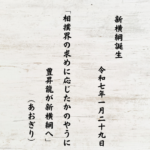 新横綱誕生
令和七年一月二十九日
「相撲界の求めに応じたかのやうに
豊昇龍が新横綱へ」
（あおぎり）